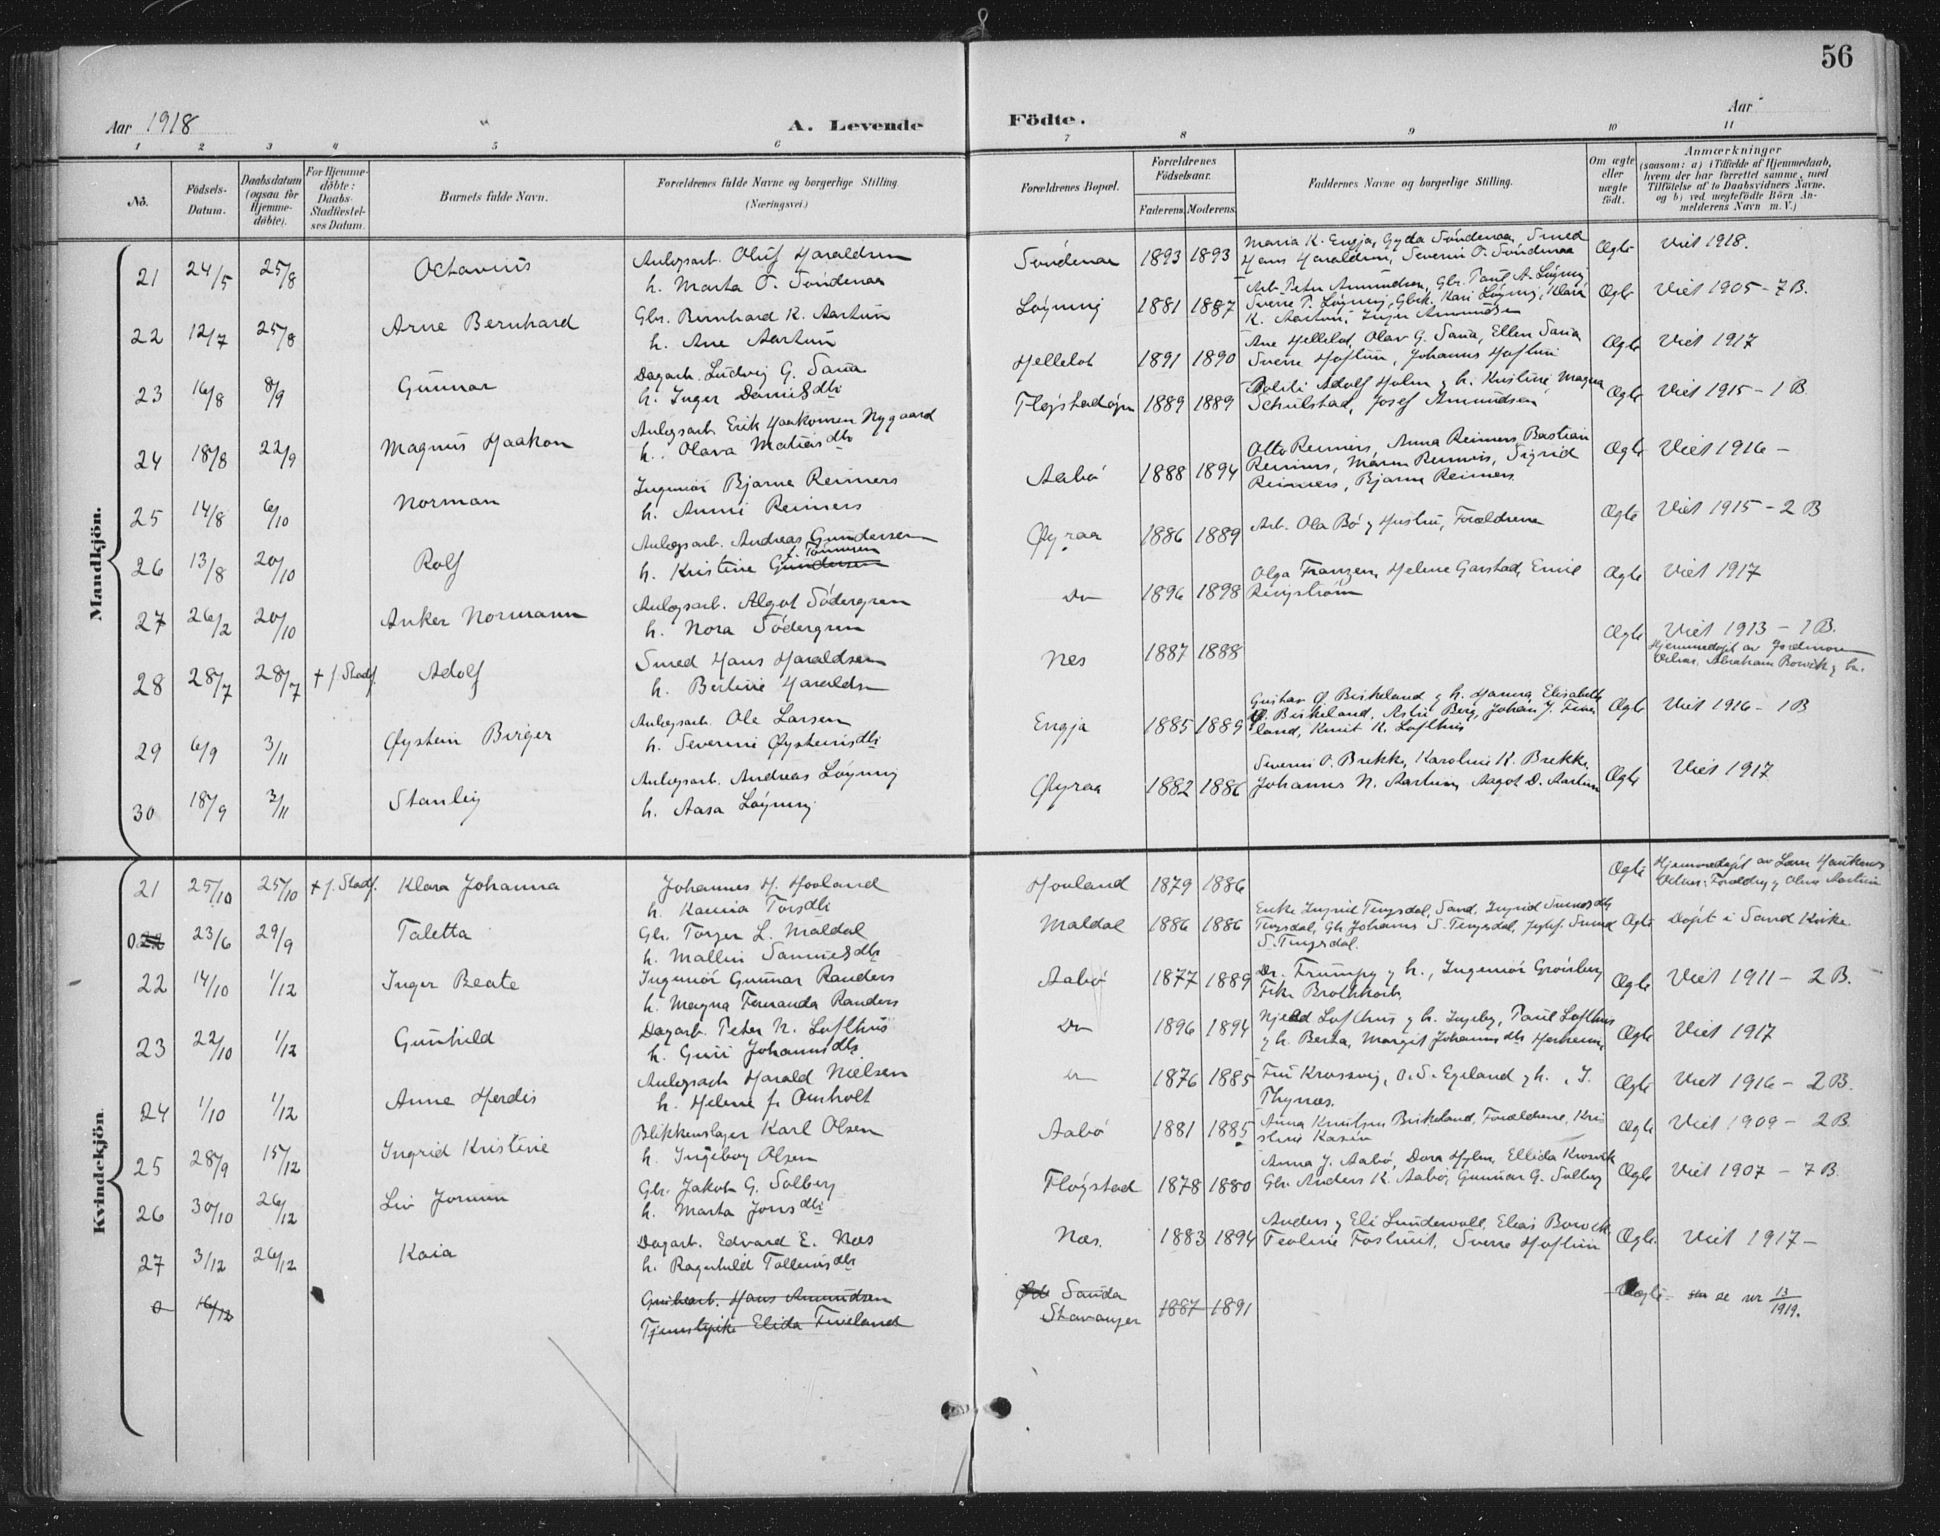 56
Aar 1918
A. Levende
Födte.
Aar
1 2 3 4 5 6 7 8 9 10 11
No.
Födsels-Datum.
Daabsdatum (ogsaa for Hjemme-döbte).
For Hjemme-döbte: Daabs-Stadfæstel-ses Datum.
Barnets fulde Navn.
Forældrenes fulde Navne og borgerlige Stilling.
(Næringsvei.)
Forældrenes Bopæl.
Forældrenes Födselsaar.
Faderens. Moderens.
Faddernes Navne og borgerlige Stilling.
Om ægte eller uægte födt.
Anmærkninger
(saasom: a) i Tilfælde af Hjemmedaab,
hvem der har forrettet samme, med
Tilföielse af to Daabsvidners Navne.
og b) ved uægtefödte Börn An-
melderens Navn m. V.)
Mandkjön.
21 24/5 25/8 Octavius
Anlegsarb. Oluf Haraldsen
h. Marta O. Søndenaa
Søndenaa 1893 1893
Maria K. Engja, Gyda Søndenaa, Smed
Hans Haraldsen, Severin O. Søndenaa
Ægte Viet 1918.
22 12/7 25/8 Arne Bernhard
Gbr. Bernhard K. Aartun
h. Ane Aartun
Løyning 1881 1887
Arb. Peter Amundsen, Gbr. Paul A. Løyning
Sverre P. Løyning, Gbrk. Kari Løyning, Klara
K. Aartun, Inger Amundsen
Ægte Viet 1905 - 7 B.
23 16/8 8/9 Gunnar
Dagarb. Ludvig G. Sana
h. Inger Danielsdtr
Hellelot 1891 1890
Ane Hellelot, Olav G. Sana, Ellen Sana
Sverre Hoftun, Johannes Hoftun
Ægte Viet 1917
24 18/8 22/9 Magnus Haakon
Anlegsarb. Erik Haakonsen Nygaard
h. Olava Matiasdtr
Fløgstadøyra 1889 1889
Politi Adolf Holm g h. Kristine Magna
Schulstad, Josef Amundsen
Ægte Viet 1915 - 1 B.
25 14/8 6/10 Norman
Ingeniør Bjarne Reimers
h. Anni Reimers
Aabø 1888 1894
Otto Reimers, Anna Reimers Bastian
Reimers, Maren Reimers, Sigrid
Reimers, Bjarne Reimers
Ægte Viet 1916 -
26 13/8 20/10 Rolf
Anlegsarb. Andreas Gundersen
h. Kristine Gundersen
Øyraa 1886 1889
Arb. Ola Bø g Hustru, Forældrene
Ægte Viet 1915 - 2 B
27 26/2 20/10 Anker Normann
Anlegsarb. Algot Södergren
h. Nora Södergren
Do 1896 1898
Olga Franzen, Helene Garstad, Emil
Ringstrøm
Ægte Viet 1917
28 28/7 28/7 + f. Stadf. Adolf
Smed Hans Haraldsen
h. Bertine Haraldsen
Nes 1887 1888
Ægte Viet 1913 - 1 B.
Hjemmedøpt av Jordmoren
Vitner. Abraham Borvik g fru.
29 6/9 3/11 Øystein Birger
Anlegsarb. Ole Larsen
h. Severine Øysteinsdtr
Engja 1885 1889
Gustav Ø. Birkeland g h. Hanna, Elisabeth
Ø. Birkeland, Astri Berg, Johan J. Five-
land, Knut K. Lofthus
Ægte Viet 1916 - 1 B
30 18/9 3/11 Stanley
Anlegsarb. Andreas Løyning
h. Aasa Løyning
Øyraa 1882 1886
Severin O. Brekke, Karoline K. Brekke,
Johannes N. Aartun, Aagot D. Aartun
Ægte Viet 1917
Kvindekjön
21 25/10 25/10 + f. Stadf. Klara Johanna
Johannes H. Hovland
h. Kania Torsdtr
Hovland 1879 1886
Ægte Hjemmedøpt av
Vitner: Forældre g Olene Aartun
0.22 23/6 29/9 Taletta
Gbr. Torger L. Maldal
h. Mallin Samuelsdtr
Maldal 1886 1886
Enke Ingrid Tengsdal, Sand, Ingrid
Tengsdal, Gbr Johannes S. Tengsdal,
S. Tengsdal.
Ægte Døpt i Sand Kirke
22 14/10 1/12 Inger Beate
Ingeniør Gunnar Randers
h. Magna Fernanda Randers
Aabø 1877 1889
Dr. Trumpy g h., Ingeniør
Frk. Brothkorb
Ægte Viet 1911 - 2 B.
23 22/10 1/12 Gunhild
Dagarb. Peter N. Lofthus
h. Guri Johannesdtr
Do 1896 1894
Njeld Lofthus g h. Ingeborg, Paul Lofthus
g h. Berta, Margit Johannesdtr
Ægte Viet 1917
24 1/10 1/12 Anne Herdis
Anlegsarb. Harald Nielsen
h. Helene f. Omholt
Do 1876 1885
Fru Krossvig, O. S. Egeland g h., J.
Thynæs.
Ægte Viet 1916 - 2 B.
25 28/9 15/12 Ingrid Kristine
Blikkenslager Karl Olsen
h. Ingeborg Olsen
Aabø 1881 1885
Anna Knutsen Birkeland, Forældrene, Kri-
stine Kasin
Ægte Viet 1909 - 2 B.
26 30/10 26/12 Liv Jorunn
Gbr. Jakob G. Solberg
h. Marta Jonsdtr
Fløgstad 1878 1880
Anna J. Aabø, Dora Hylen, Ellida Krosvik
Gbr. Anders K. Aabø, Gunnar G. Solberg
Ægte Viet 1907 - 7 B.
27 3/12 26/12 Kaia
Dagarb. Edvard E. Næs
h. Ragnhild Tollevsdtr
Næs. 1883 1894
Anders g Eli Lundevold, Elias Borvik
Teoline Fosstveit, Sverre Hoftun
Ægte. Viet 1917 -
0 16/12
Grubearb. Hans Amundsen
Tjenestepike Elida Fiveland
Sauda
Stavanger
1887 1891
Uægte se nr 13/1919.